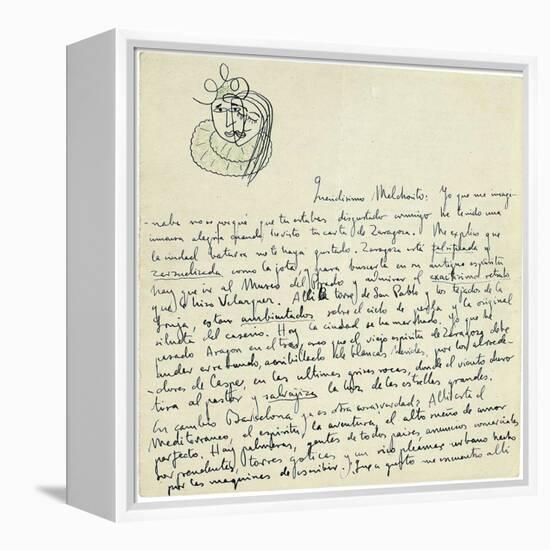 Queridisimo Melchorito: Yo que me imagi-
-naba no se porqué que tu estabas disgustado conmigo he tenido una
inmensa alegria cuando he visto tu carta de Zaragoza. Me explico que
la ciudad baturra no te haya gustado. Zaragoza está falsificada y
zarzuelizada como la jota y para buscarla en su antiguo espiritu
hay que ir al Museo del Prado y admirar el exactisimo retrato
que hizo Velazquez. Alli la torre de San Pablo y los tejados de la
Lonja, estan ambientados sobre el cielo de perla y la original
silueta del caserio. Hoy la ciudad se ha marchado. Yo que he
pasado Aragon en el tren, creo que el viejo espiritu de Zaragoza debe
andar errabundo, acribillado de blancas heridas, por los alrede-
-dores de Caspe, en las ultimas grises rocas, donde el viento duro
tira al pastor y salvajiza la luz de las estrellas grandes.
En cambio Barcelona ya es otra cosa ¿verdad? Alli está el
Mediterraneo, el espiritu, la aventura, el alto sueño de amor
perfecto. Hay palmeras, gentes de todos paises, anuncios comerciales
sorprendentes, torres goticas y un rico pleamar urbano hecho
por las maquinas de escribir. ¡Que a gusto me encuentro alli